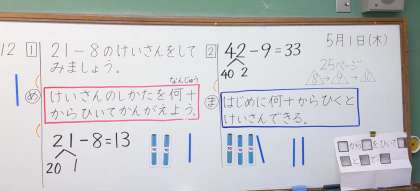 12
1
21-8のけいさんをして
みましょう。
め
なんじゅう
けいさんのしかたを何十
からひいてかんがえよう。
21-8=13
20 1
2
42-9=33
40 2
5月1日(木)
25ページ
ま
はじめに何十からひくと
けいさんできる。
から
をひいて
と
で